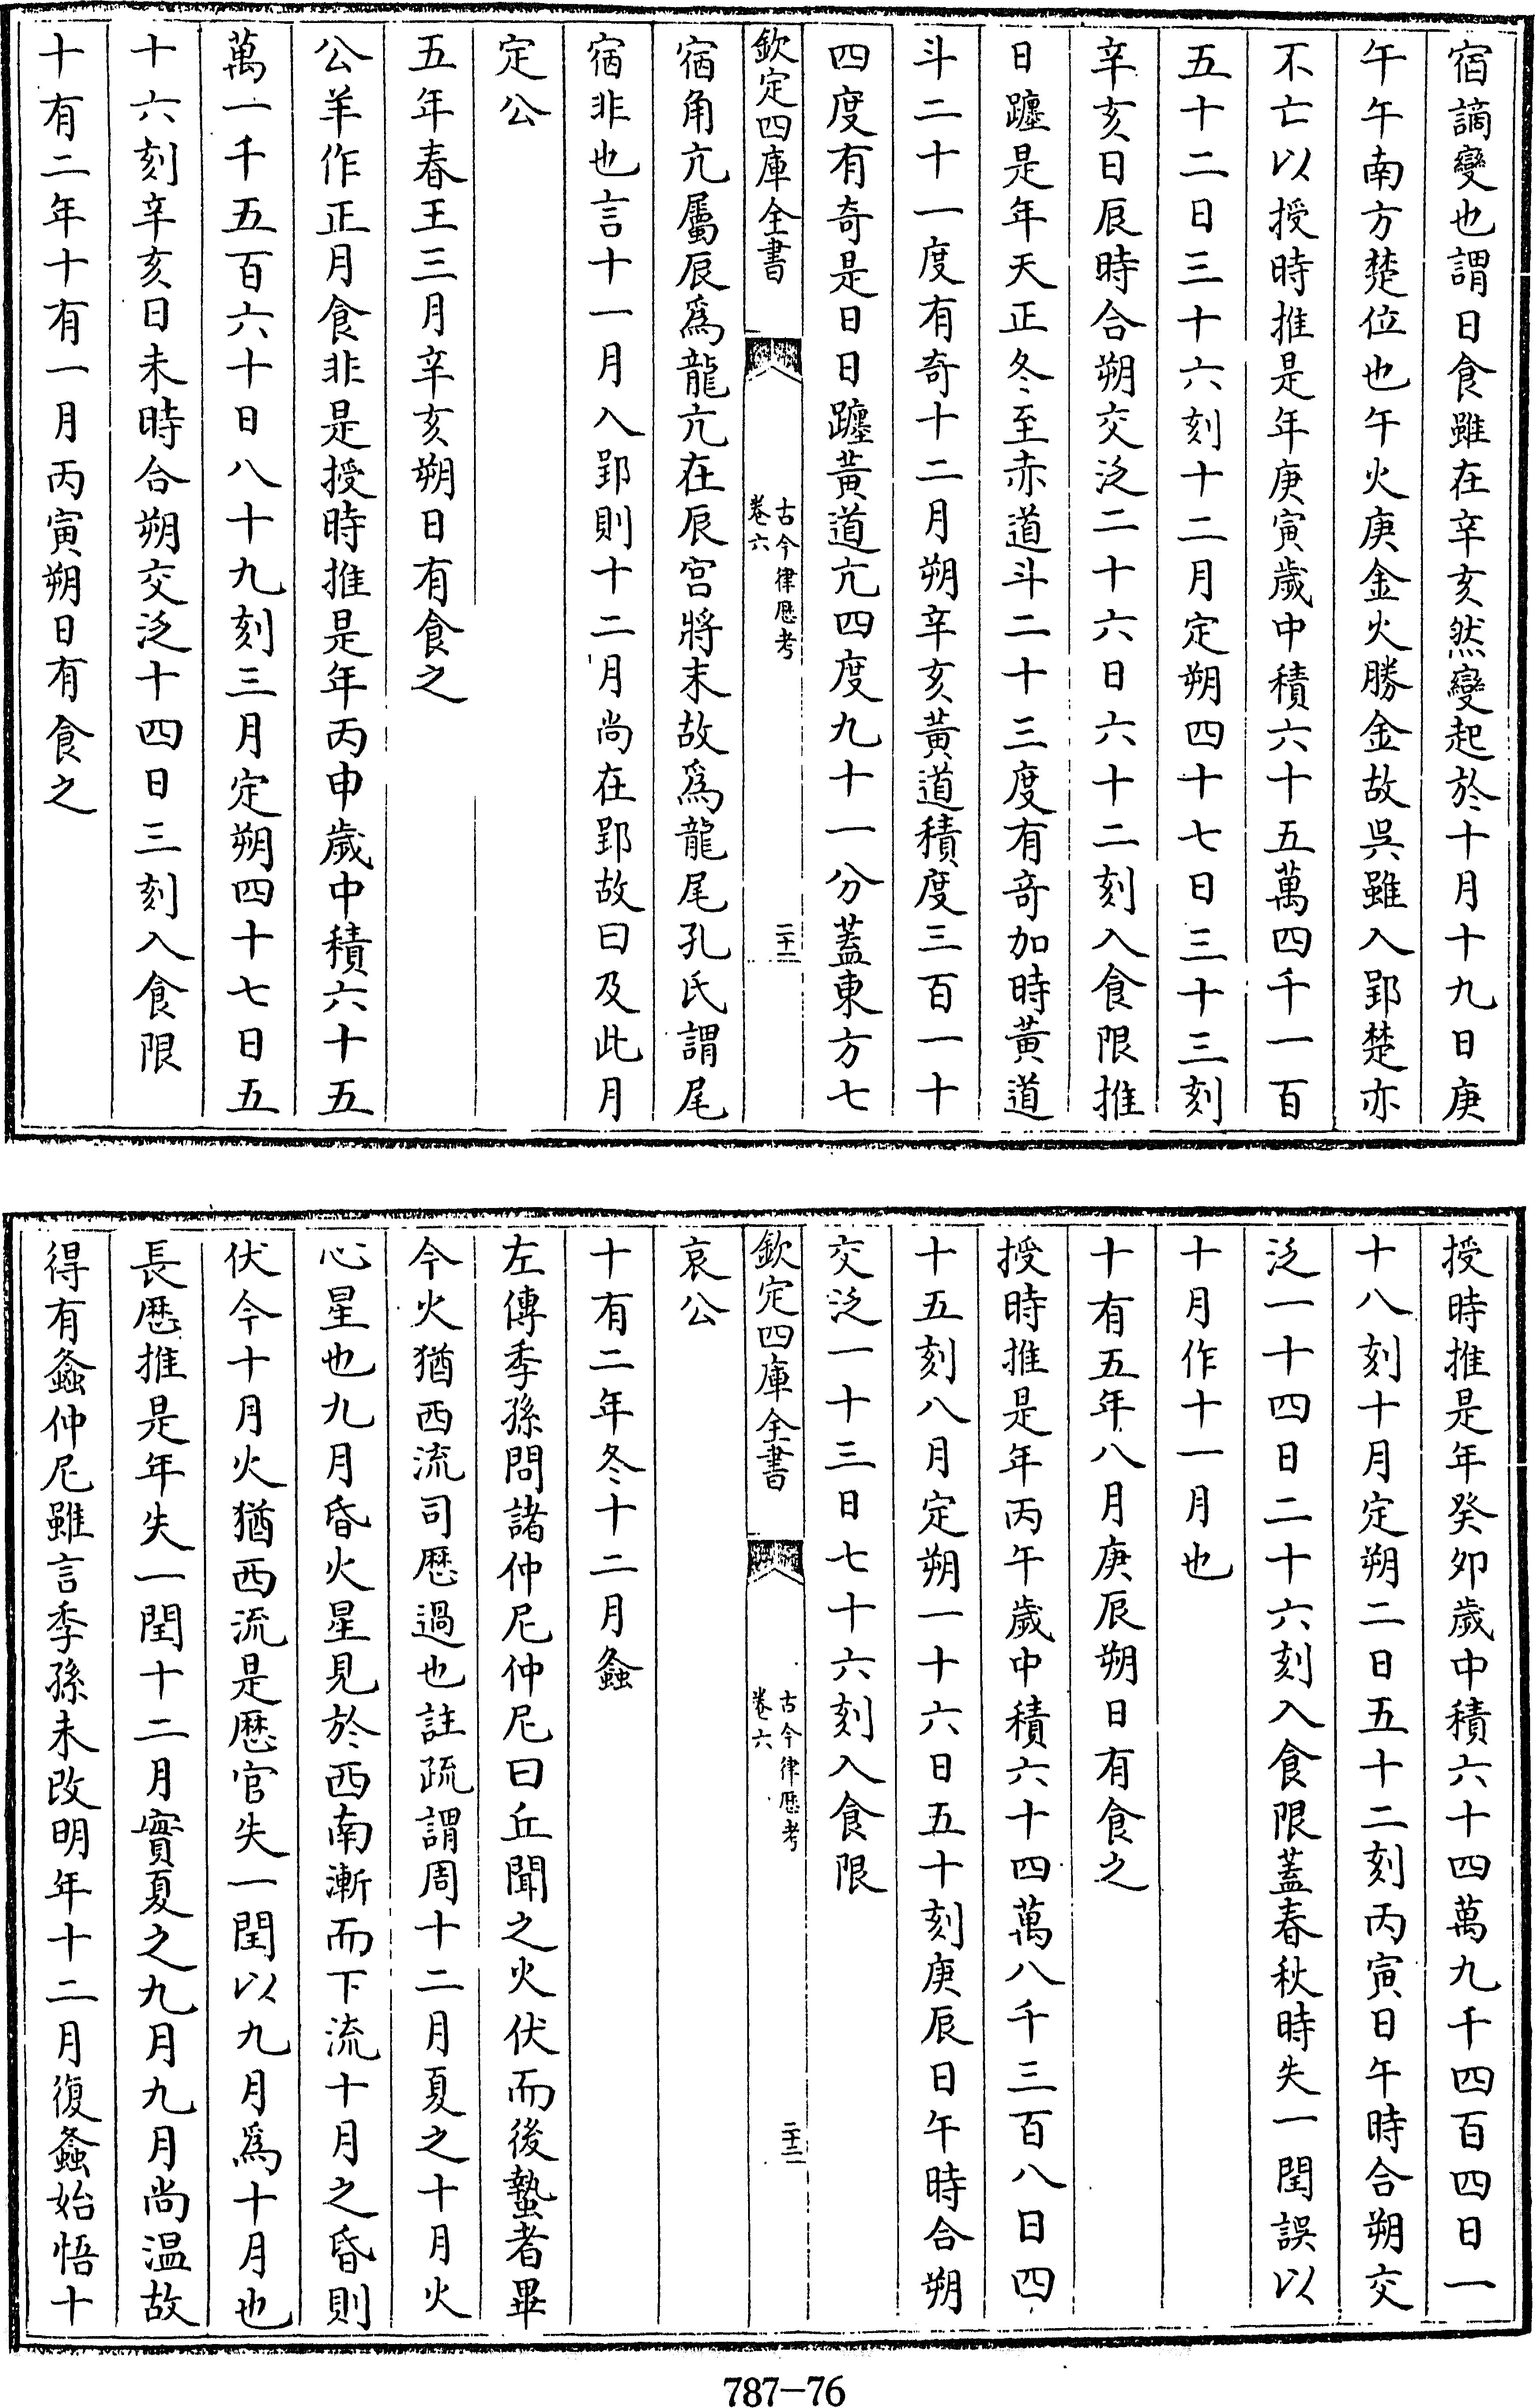 宿謫變也謂日食雖在辛亥然變起於十月十九日庚
午午南方楚位也午火庚金火勝金故吳雖入郢楚亦
不亡以授時推是年庚寅歲中積六十五萬四千一百
五十二日三十六刻十二月定朔四十七日三十三刻
辛亥日辰時合朔交泛二十六日六十二刻入食限推
日躔是年天正冬至赤道斗二十三度有奇加時黃道
斗二十一度有奇十二月朔辛亥黃道積度三百一十
四度有奇是日日躔黃道亢四度九十一分蓋東方七
欽定四庫全書
古今律歷考
卷六
二十二
宿角亢屬辰爲龍亢在辰宮將末故爲龍尾孔氏謂尾
宿非也言十一月入郢則十二月尚在郢故曰及此月
定公
五年春王三月辛亥朔日有食之
公羊作正月食非是授時推是年丙申歲中積六十五
萬一千五百六十日八十九刻三月定朔四十七日五
十六刻辛亥日未時合朔交泛十四日三刻入食限
十有二年十有一月丙寅朔日有食之
授時推是年癸卯歲中積六十四萬九千四百四日一
十八刻十月定朔二日五十二刻丙寅日午時合朔交
泛一十四日二十六刻入食限蓋春秋時失一閏誤以
十月作十一月也
十有五年八月庚辰朔日有食之
授時推是年丙午歲中積六十四萬八千三百八日四
十五刻八月定朔一十六日五十刻庚辰日午時合朔
交泛一十三日七十六刻入食限
欽定四庫全書
古今律歷考
卷六
二十三
哀公
十有二年冬十二月螽
左傳季孫問諸仲尼仲尼曰丘聞之火伏而後蟄者畢
今火猶西流司歷過也註疏謂周十二月夏之十月火
心星也九月昏火星見於西南漸而下流十月之昏則
伏今十月火猶西流是歷官失一閏以九月爲十月也
長歷推是年失一閏十二月實夏之九月九月尚温故
得有螽仲尼雖言季孫未改明年十二月復螽始悟十
787-76